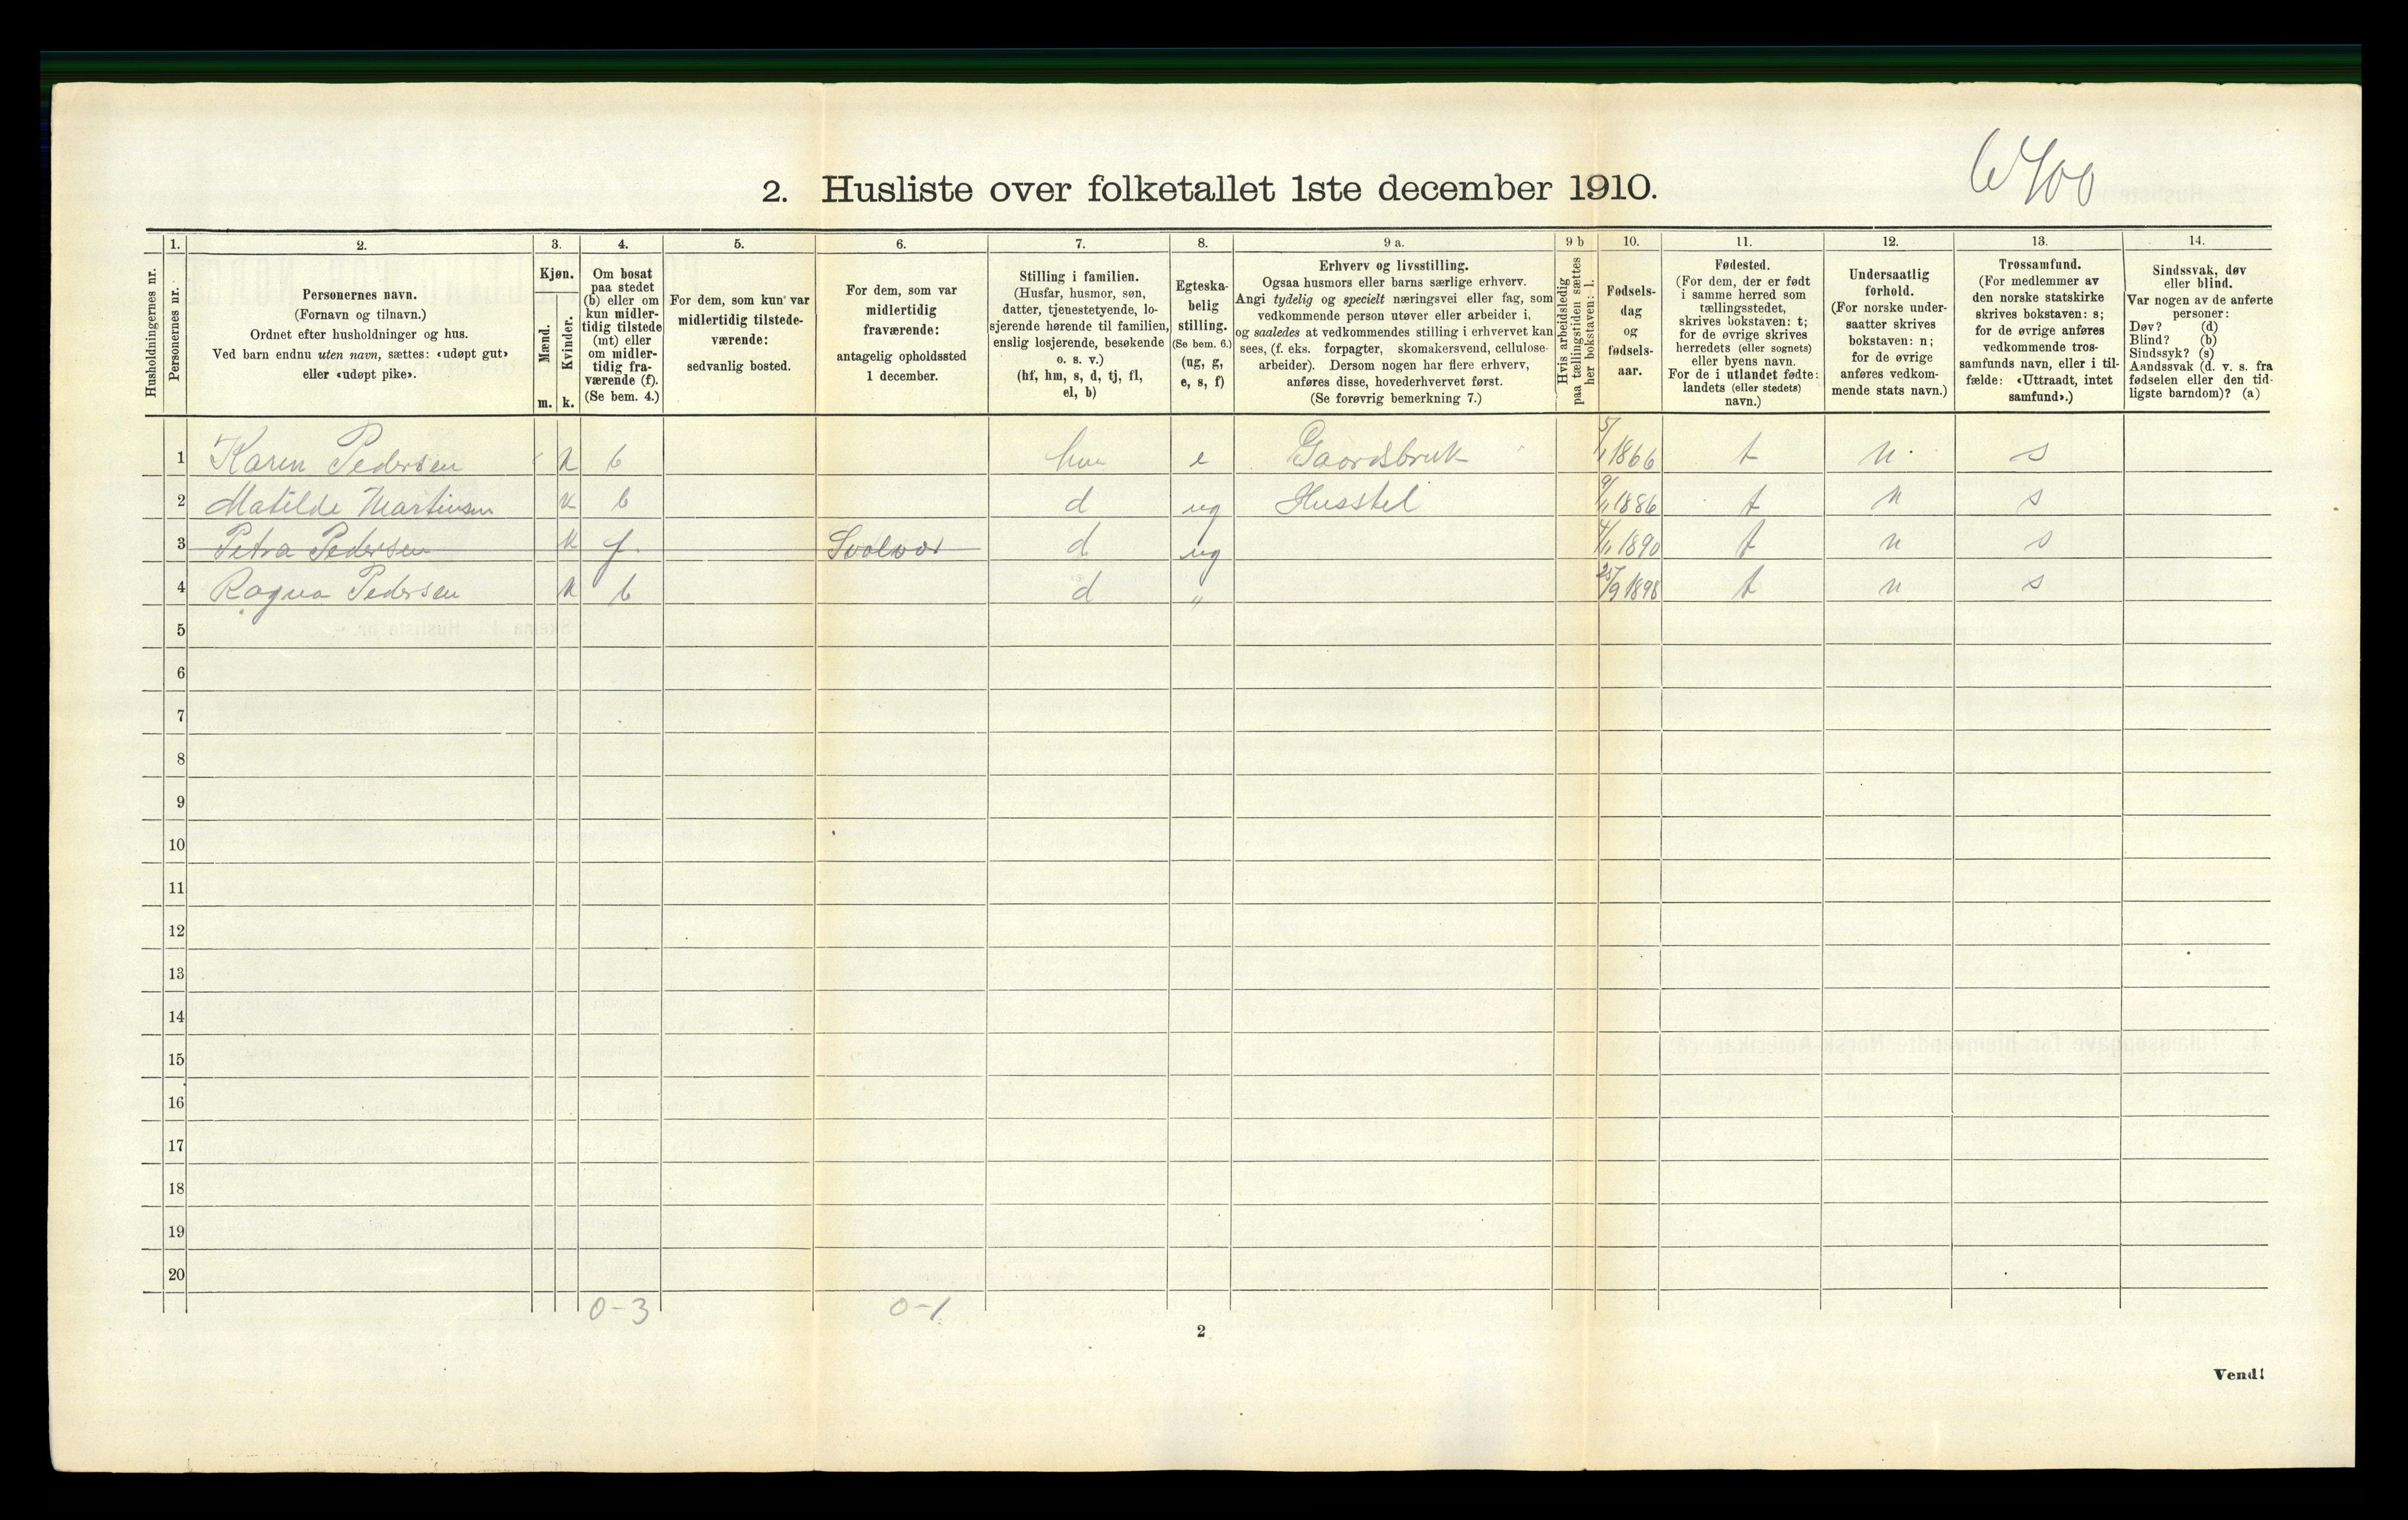 2. Husliste over folketallet 1ste december 1910.
Husholdningernes nr.
1.
Personernes nr.
2.
Personernes navn.
(Fornavn og tilnavn.)
Ordnet efter husholdninger og hus.
Ved barn endnu uten navn, sættes: «udøpt gut»
eller «udøpt pike».
3.
Kjøn.
Mænd.
Kvinder.
m. k.
4.
Om bosat
paa stedet
(b) eller om
kun midler-
tidig tilstede
(mt) eller
om midler-
tidig fra-
værende (f).
(Se bem. 4.)
5.
For dem, som kun var
midlertidig tilstede-
værende:
sedvanlig bosted.
6.
For dem, som var
midlertidig
fraværende:
antagelig opholdssted
1 december.
7.
Stilling i familien.
(Husfar, husmor, søn,
datter, tjenestetyende, lo-
sjerende hørende til familien,
enslig losjerende, besøkende
o. s. v.)
(hf, hm, s, d, tj, fl,
el, b)
8.
Egteska-
belig
stilling.
(Se bem. 6.)
(ug, g,
e, s, f)
9 a.
Erhverv og livsstilling.
Ogsaa husmors eller barns særlige erhverv.
Angi tydelig og specielt næringsvei eller fag, som
vedkommende person utøver eller arbeider i,
og saaledes at vedkommendes stilling i erhvervet kan
sees, (f. eks. forpagter, skomakersvend, cellulose-
arbeider). Dersom nogen har flere erhverv,
anføres disse, hovederhvervet først.
(Se forøvrig bemerkning 7.)
9 b
Hvis arbeidsledig
paa tællingstiden sættes
her bokstaven: l.
10.
Fødsels-
dag
og
fødsels-
aar.
11.
Fødested.
(For dem, der er født
i samme herred som
tællingsstedet,
skrives bokstaven: t;
for de øvrige skrives
herredets (eller sognets)
eller byens navn.
For de i utlandet fødte:
landets (eller stedets)
navn.)
12.
Undersaatlig
forhold.
(For norske under-
saatter skrives
bokstaven: n;
for de øvrige
anføres vedkom-
mende stats navn.)
13.
Trossamfund.
(For medlemmer av
den norske statskirke
skrives bokstaven: s;
for de øvrige anføres
vedkommende tros-
samfunds navn, eller i til-
fælde: «Uttraadt, intet
samfund».)
14.
Sindssvak, døv
eller blind.
Var nogen av de anførte
personer:
Døv? (d)
Blind? (b)
Sindssyk? (s)
Aandssvak (d. v. s. fra
fødselen eller den tid-
ligste barndom)? (a)
1 Karen Pedersen k b hm e Gaardsbruk 5/1 1866 t n s
2 Matilde Martinsen k b d ug Husstel 9/11 1886 t n s
3 Petra Pedersen k f Svolvær d ug 4/11 1890 t n s
4 Ragna Pedersen k b d " 25/9 1898 t n s
5
6
7
8
9
10
11
12
13
14
15
16
17
18
19
20
0-3 0-1
2
Vend!